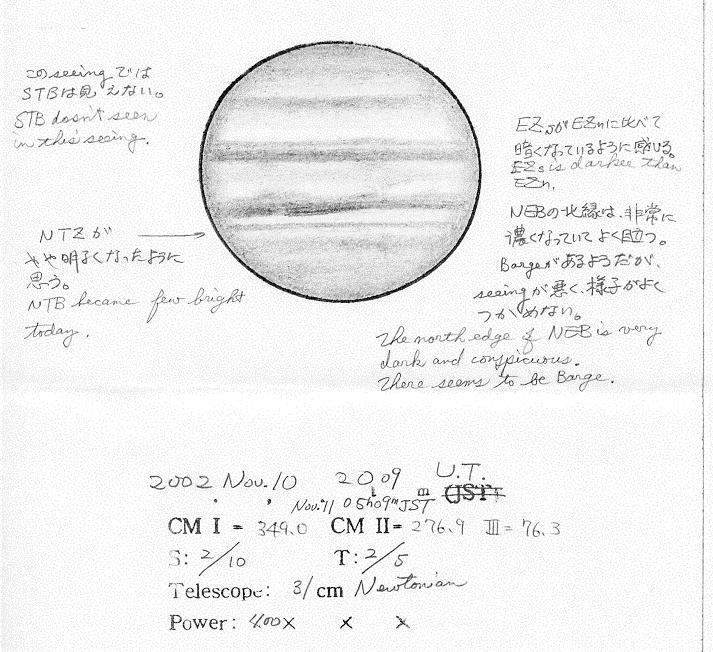 このseeingでは
STBは見えない。
STB doesn't seen
in this seeing.
NTZが
やや明るくなったように
思う。
NTB became few bright
today.
EZsがEZnに比べて
暗くなっているように感じる。
EZs is darker than
EZn.
NEBの北縁は、非常に
濃くなっていてよく目立つ。
Bargeがあるようだが、
seeingが悪く、様子がよく
つかめない。
The north edge of NEB is very
dark and conspicuous.
There seems to be Barge.
2002 Nov. 10 20h09m U.T. (JST)
Nov. 11 05h09m JST
CM I = 349.0 CM II = 276.9 III = 76.3
S: 2/10 T: 2/5
Telescope: 31 cm Newtonian
Power: 400× × ×